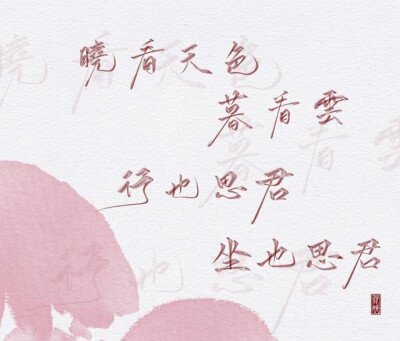 曉看天色
暮看雲
行也思君
坐也思君